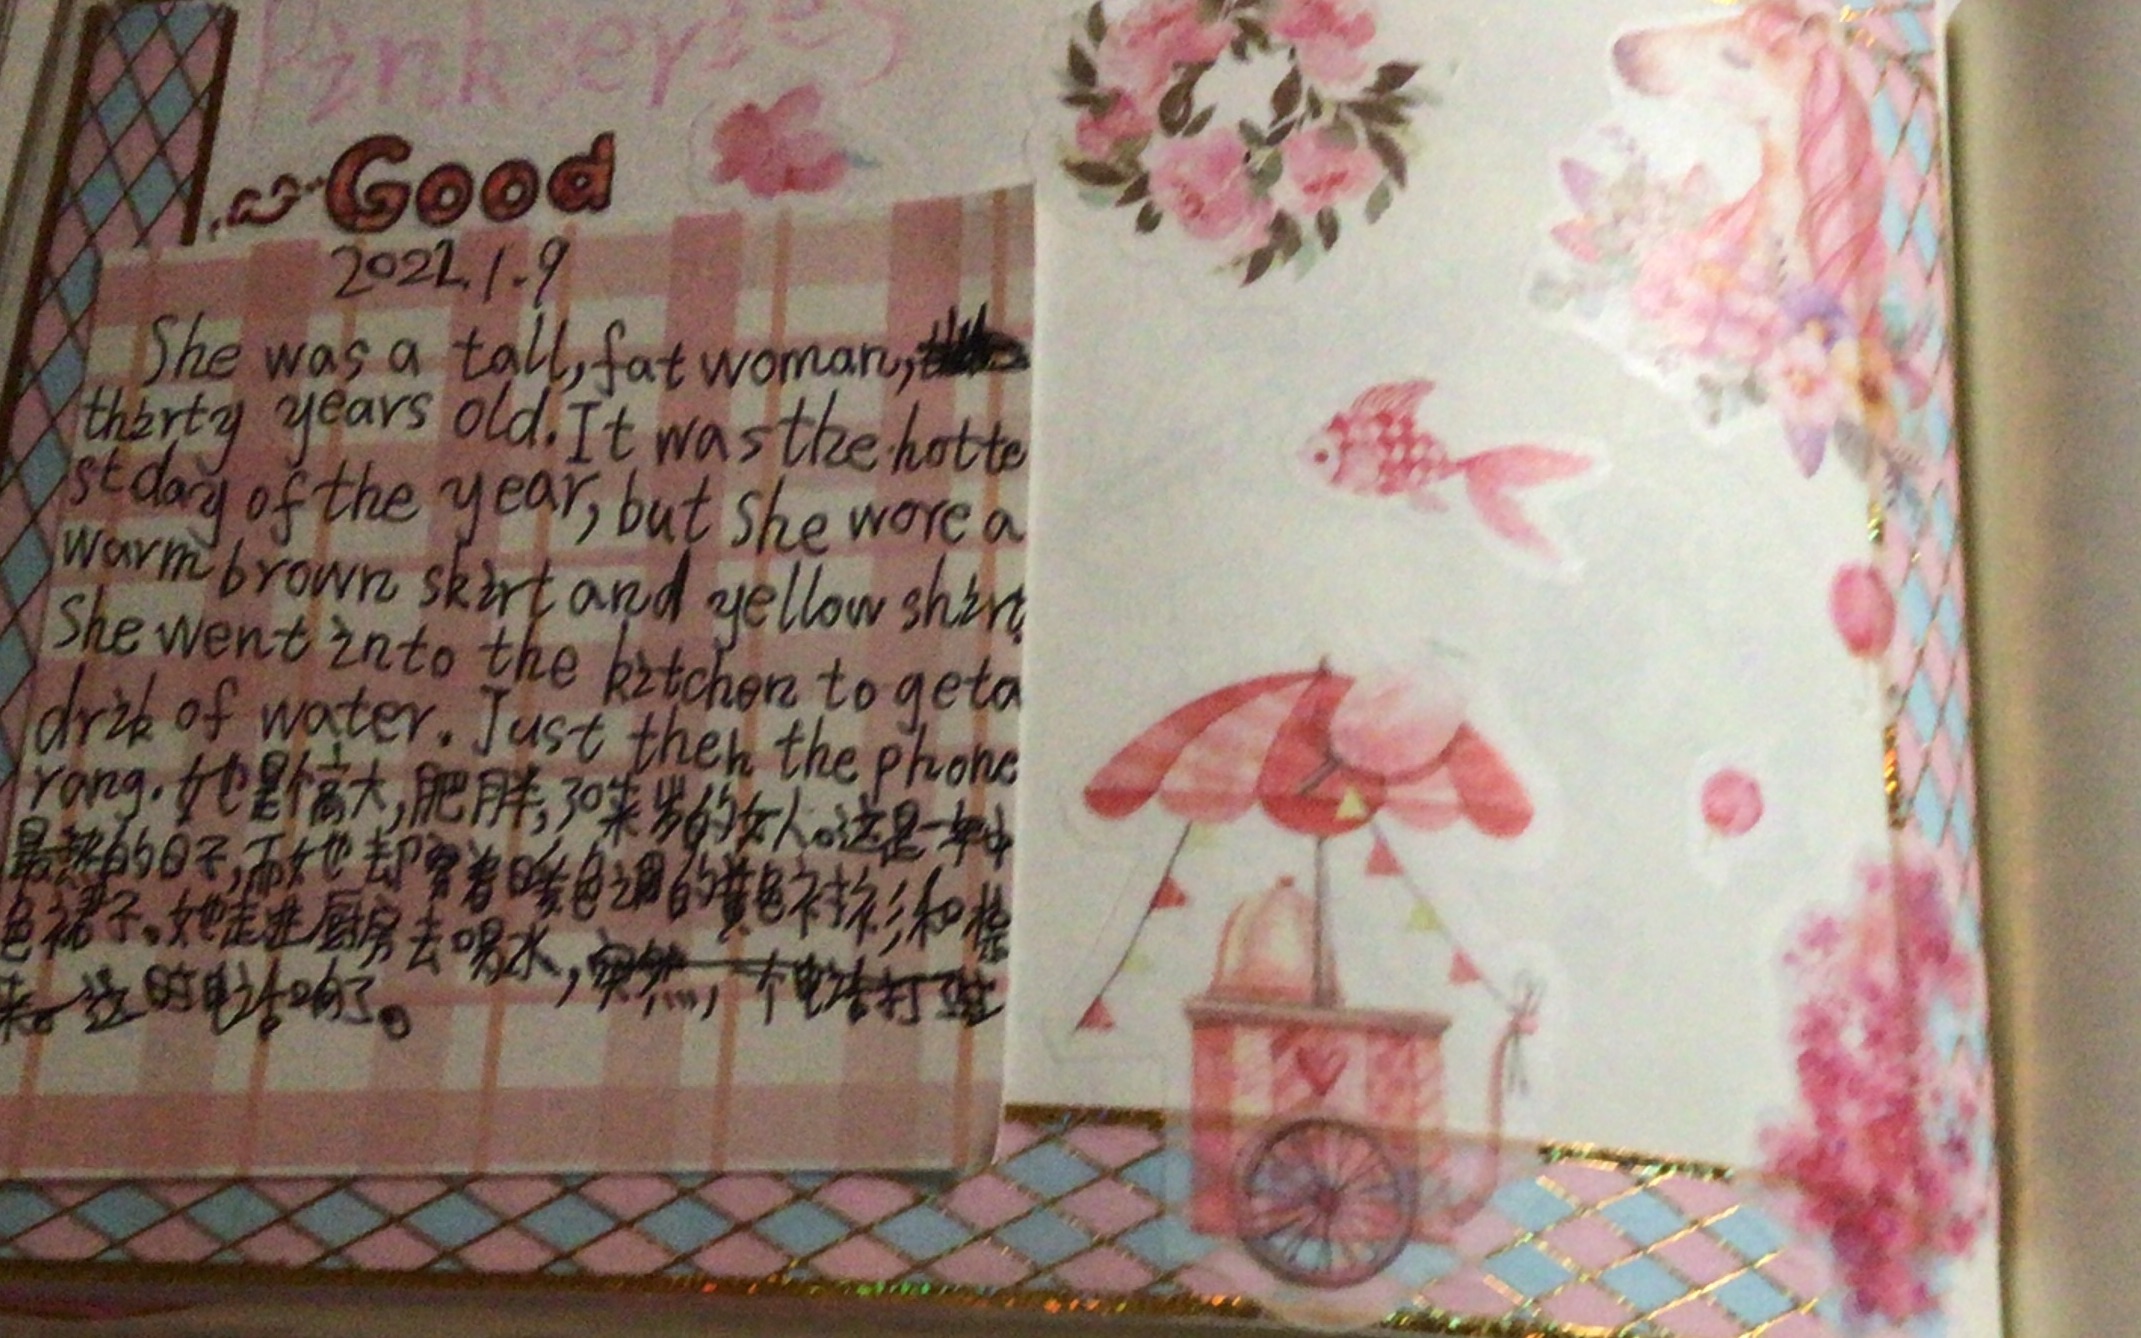 Pink series
Good
2022.1.9
She was a tall, fat woman,
thirty years old. It was the hotte
st day of the year, but she wore a
warm brown skirt and yellow shirt.
She went into the kitchen to get a
drik of water. Just then the phone
rang. 她是个高大,肥胖,30来岁的女人。这是一年中
最热的日子,而她却穿着暖色调的黄色衬衫和棕
色裙子。她走进厨房去喝水,突然,一个电话打过
来。这时电话响了。